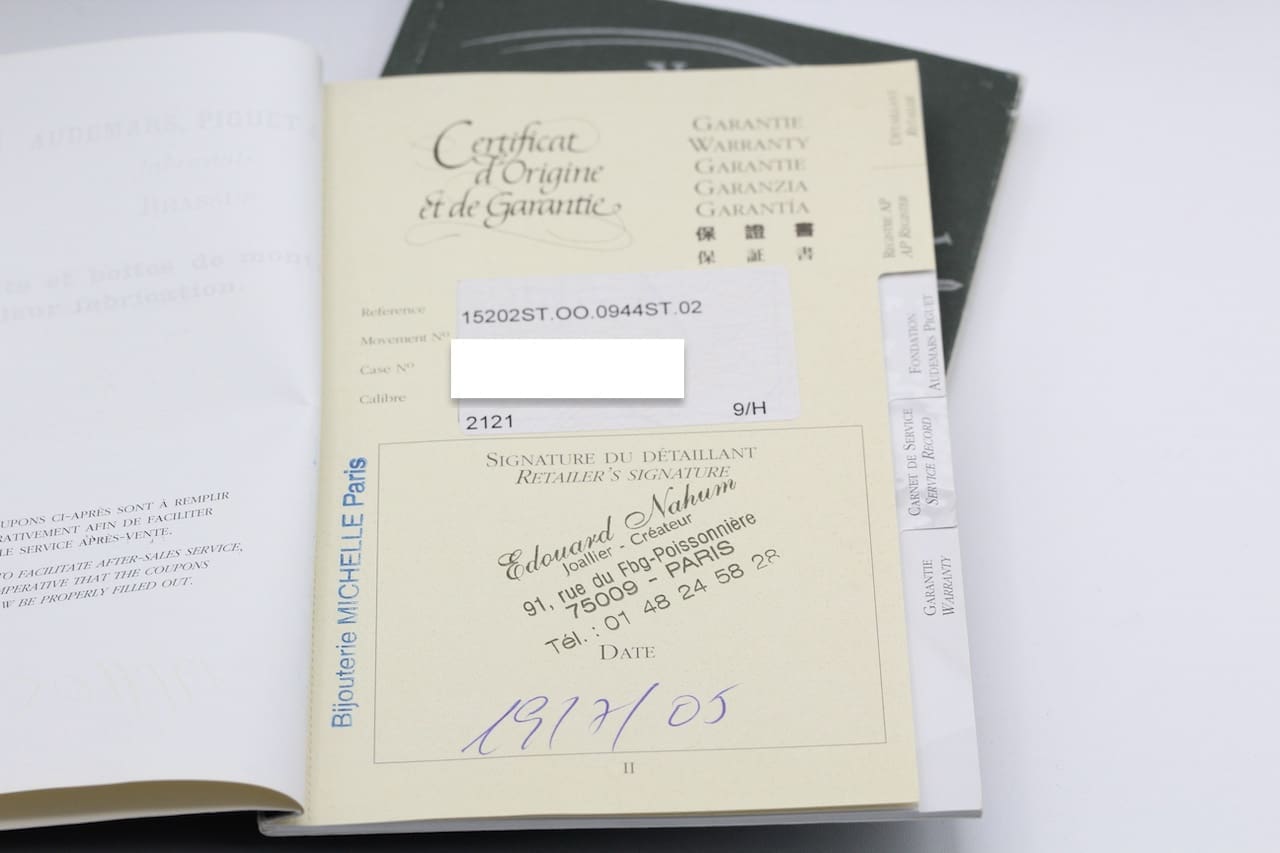 AUDEMARS, PIGUET
BRASSUS
ts et boîtes de mon
leur fabrication.
UPONS CI-APRÈS SONT À REMPLIR
RATIVEMENT AFIN DE FACILITER
LE SERVICE APRÈS-VENTE.
TO FACILITATE AFTER-SALES SERVICE,
MPERATIVE THAT THE COUPONS
W BE PROPERLY FILLED OUT.
Certificat
d'Origine
et de Garantie
GARANTIE
WARRANTY
GARANTIE
GARANZIA
GARANTÍA
保 證 書
保 証 書
Reference 15202ST.OO.0944ST.02
Movement Nº
Case Nº
Calibre 2121 9/H
Bijouterie MICHELLE Paris
SIGNATURE DU DÉTAILLANT
RETAILER'S SIGNATURE
Edouard Nahum
Joallier - Créateur
91, rue du Fbg-Poissonnière
75009 - PARIS
Tél. : 01 48 24 58 28
DATE
19/7/05
II
DÉTAILLANT
RETAILER
REGISTRE AP
AP REGISTER
FONDATION
AUDEMARS PIGUET
CARNET DE SERVICE
SERVICE RECORD
GARANTIE
WARRANTY